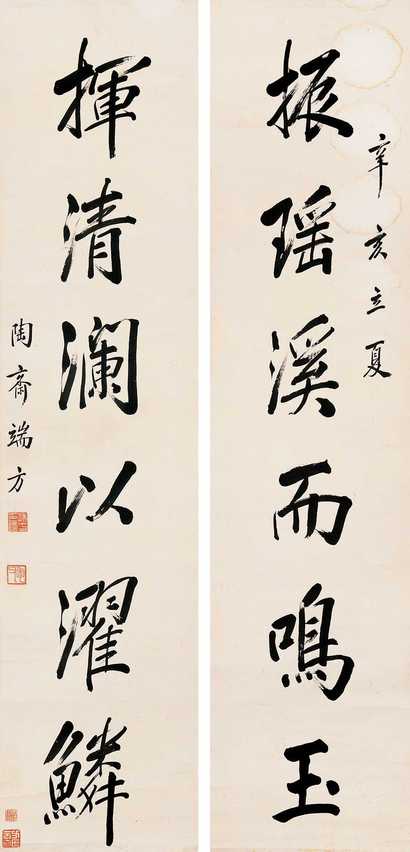 振瑤溪而鳴玉
辛亥立夏
揮清瀾以濯鱗
陶齋端方